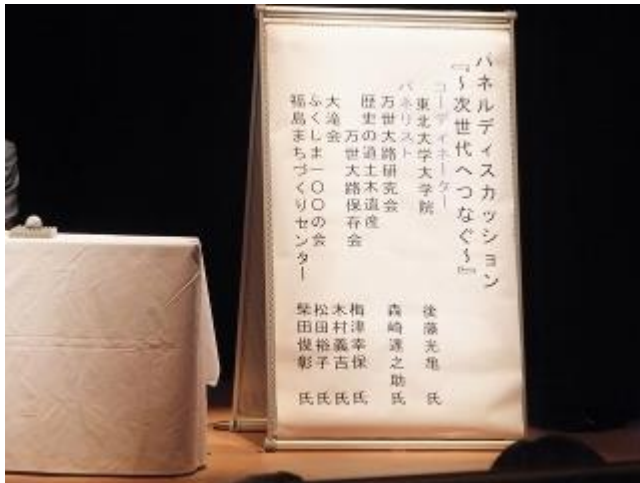 パネルディスカッション
『～次世代へつなぐ～』
コーディネーター
東北大学大学院 後藤光亀 氏
パネリスト
万世大路研究会 森崎達之助 氏
歴史の道土木遺産
万世大路保存会 梅津幸保 氏
大滝会 木村義吉 氏
ふくしま一〇〇の会 松田裕子 氏
福島まちづくりセンター 栞田俊彰 氏